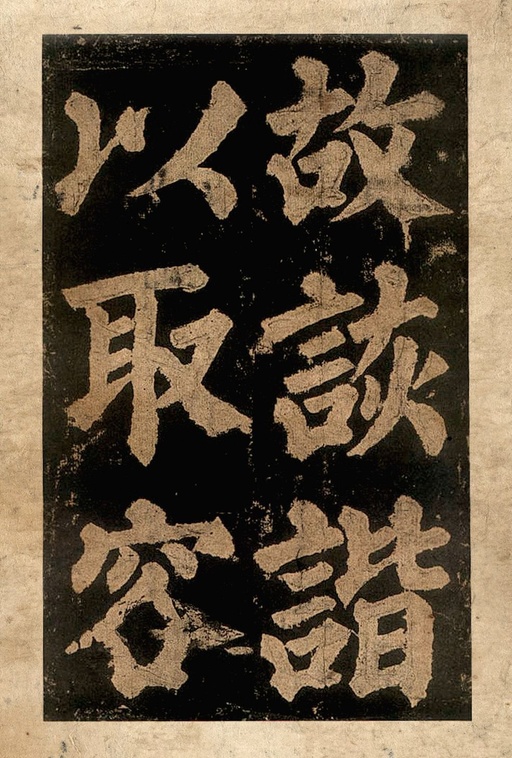 故詼諧
以取容